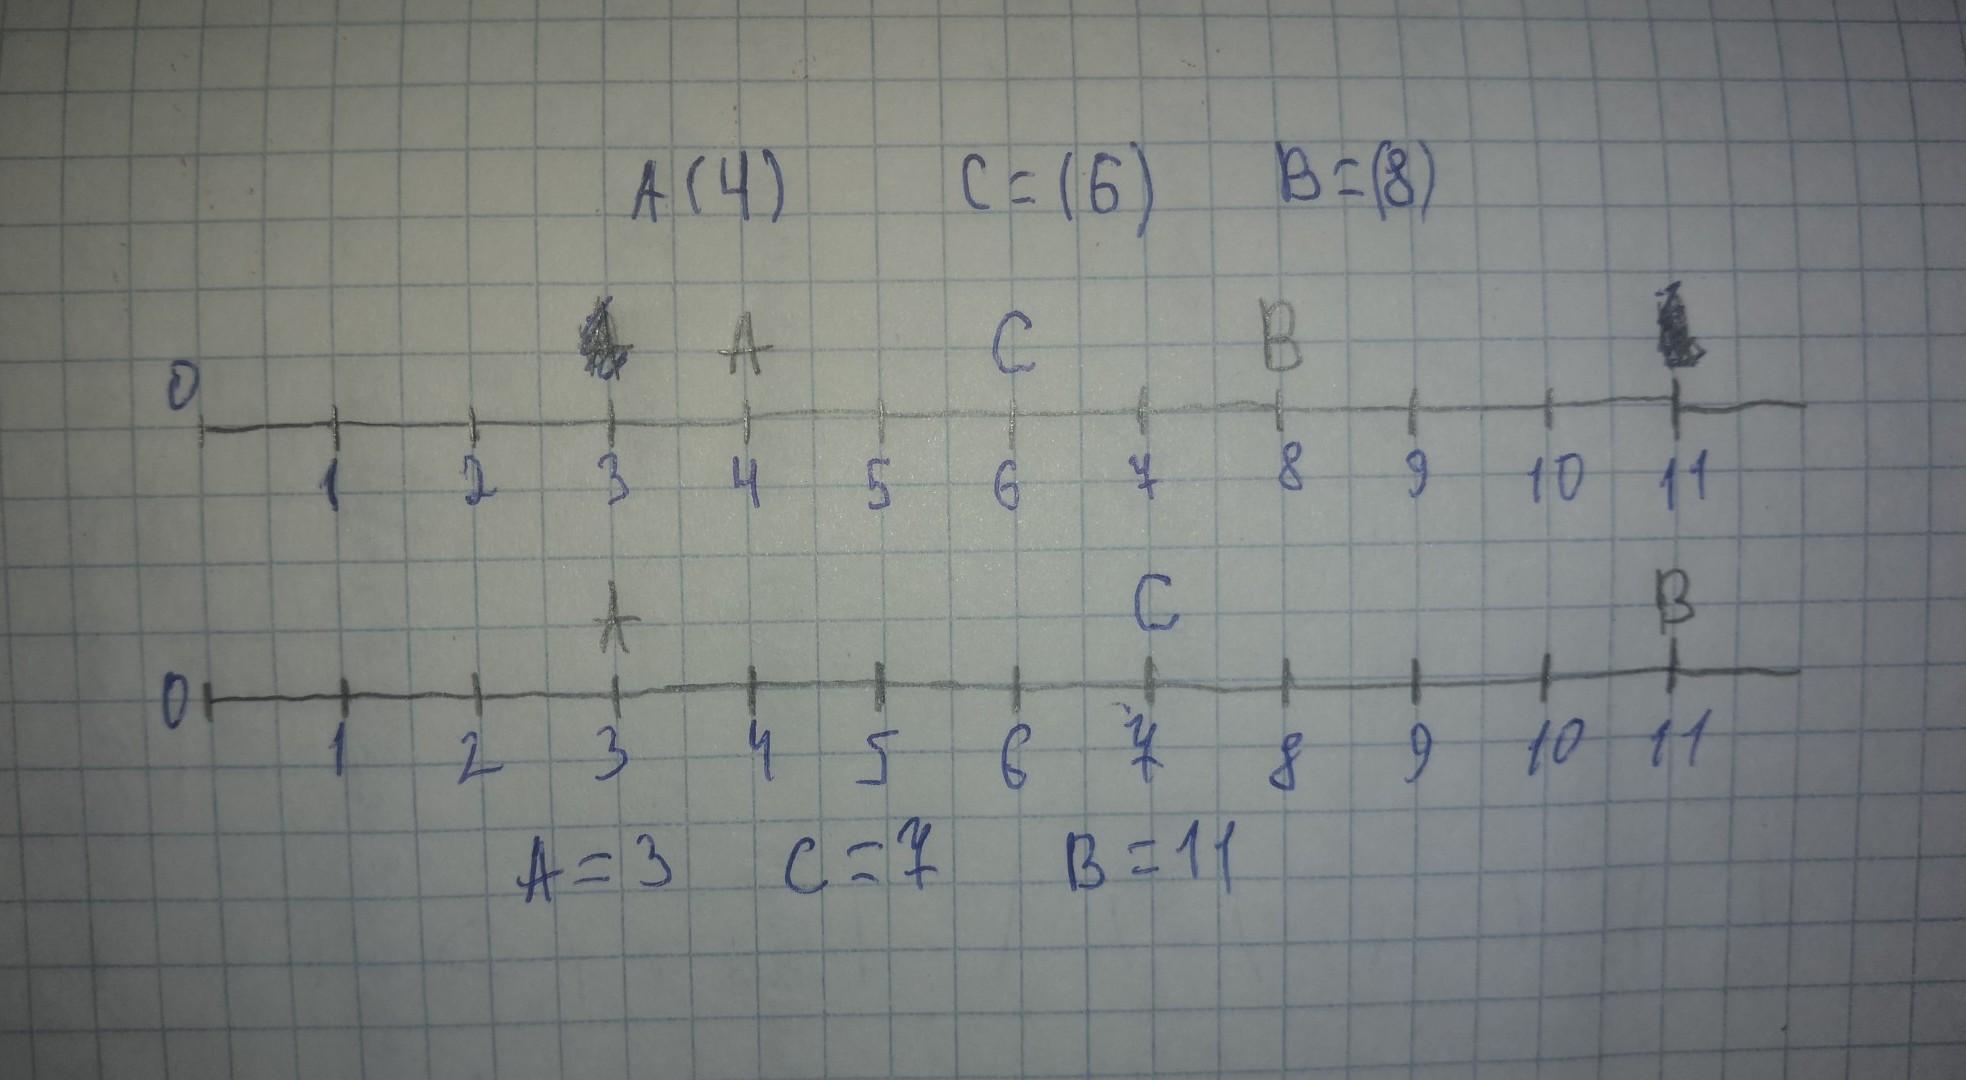 A(4) C=(6) B=(8)
A C B
0
1 2 3 4 5 6 7 8 9 10 11
A C B
0
1 2 3 4 5 6 7 8 9 10 11
A=3 C=7 B=11